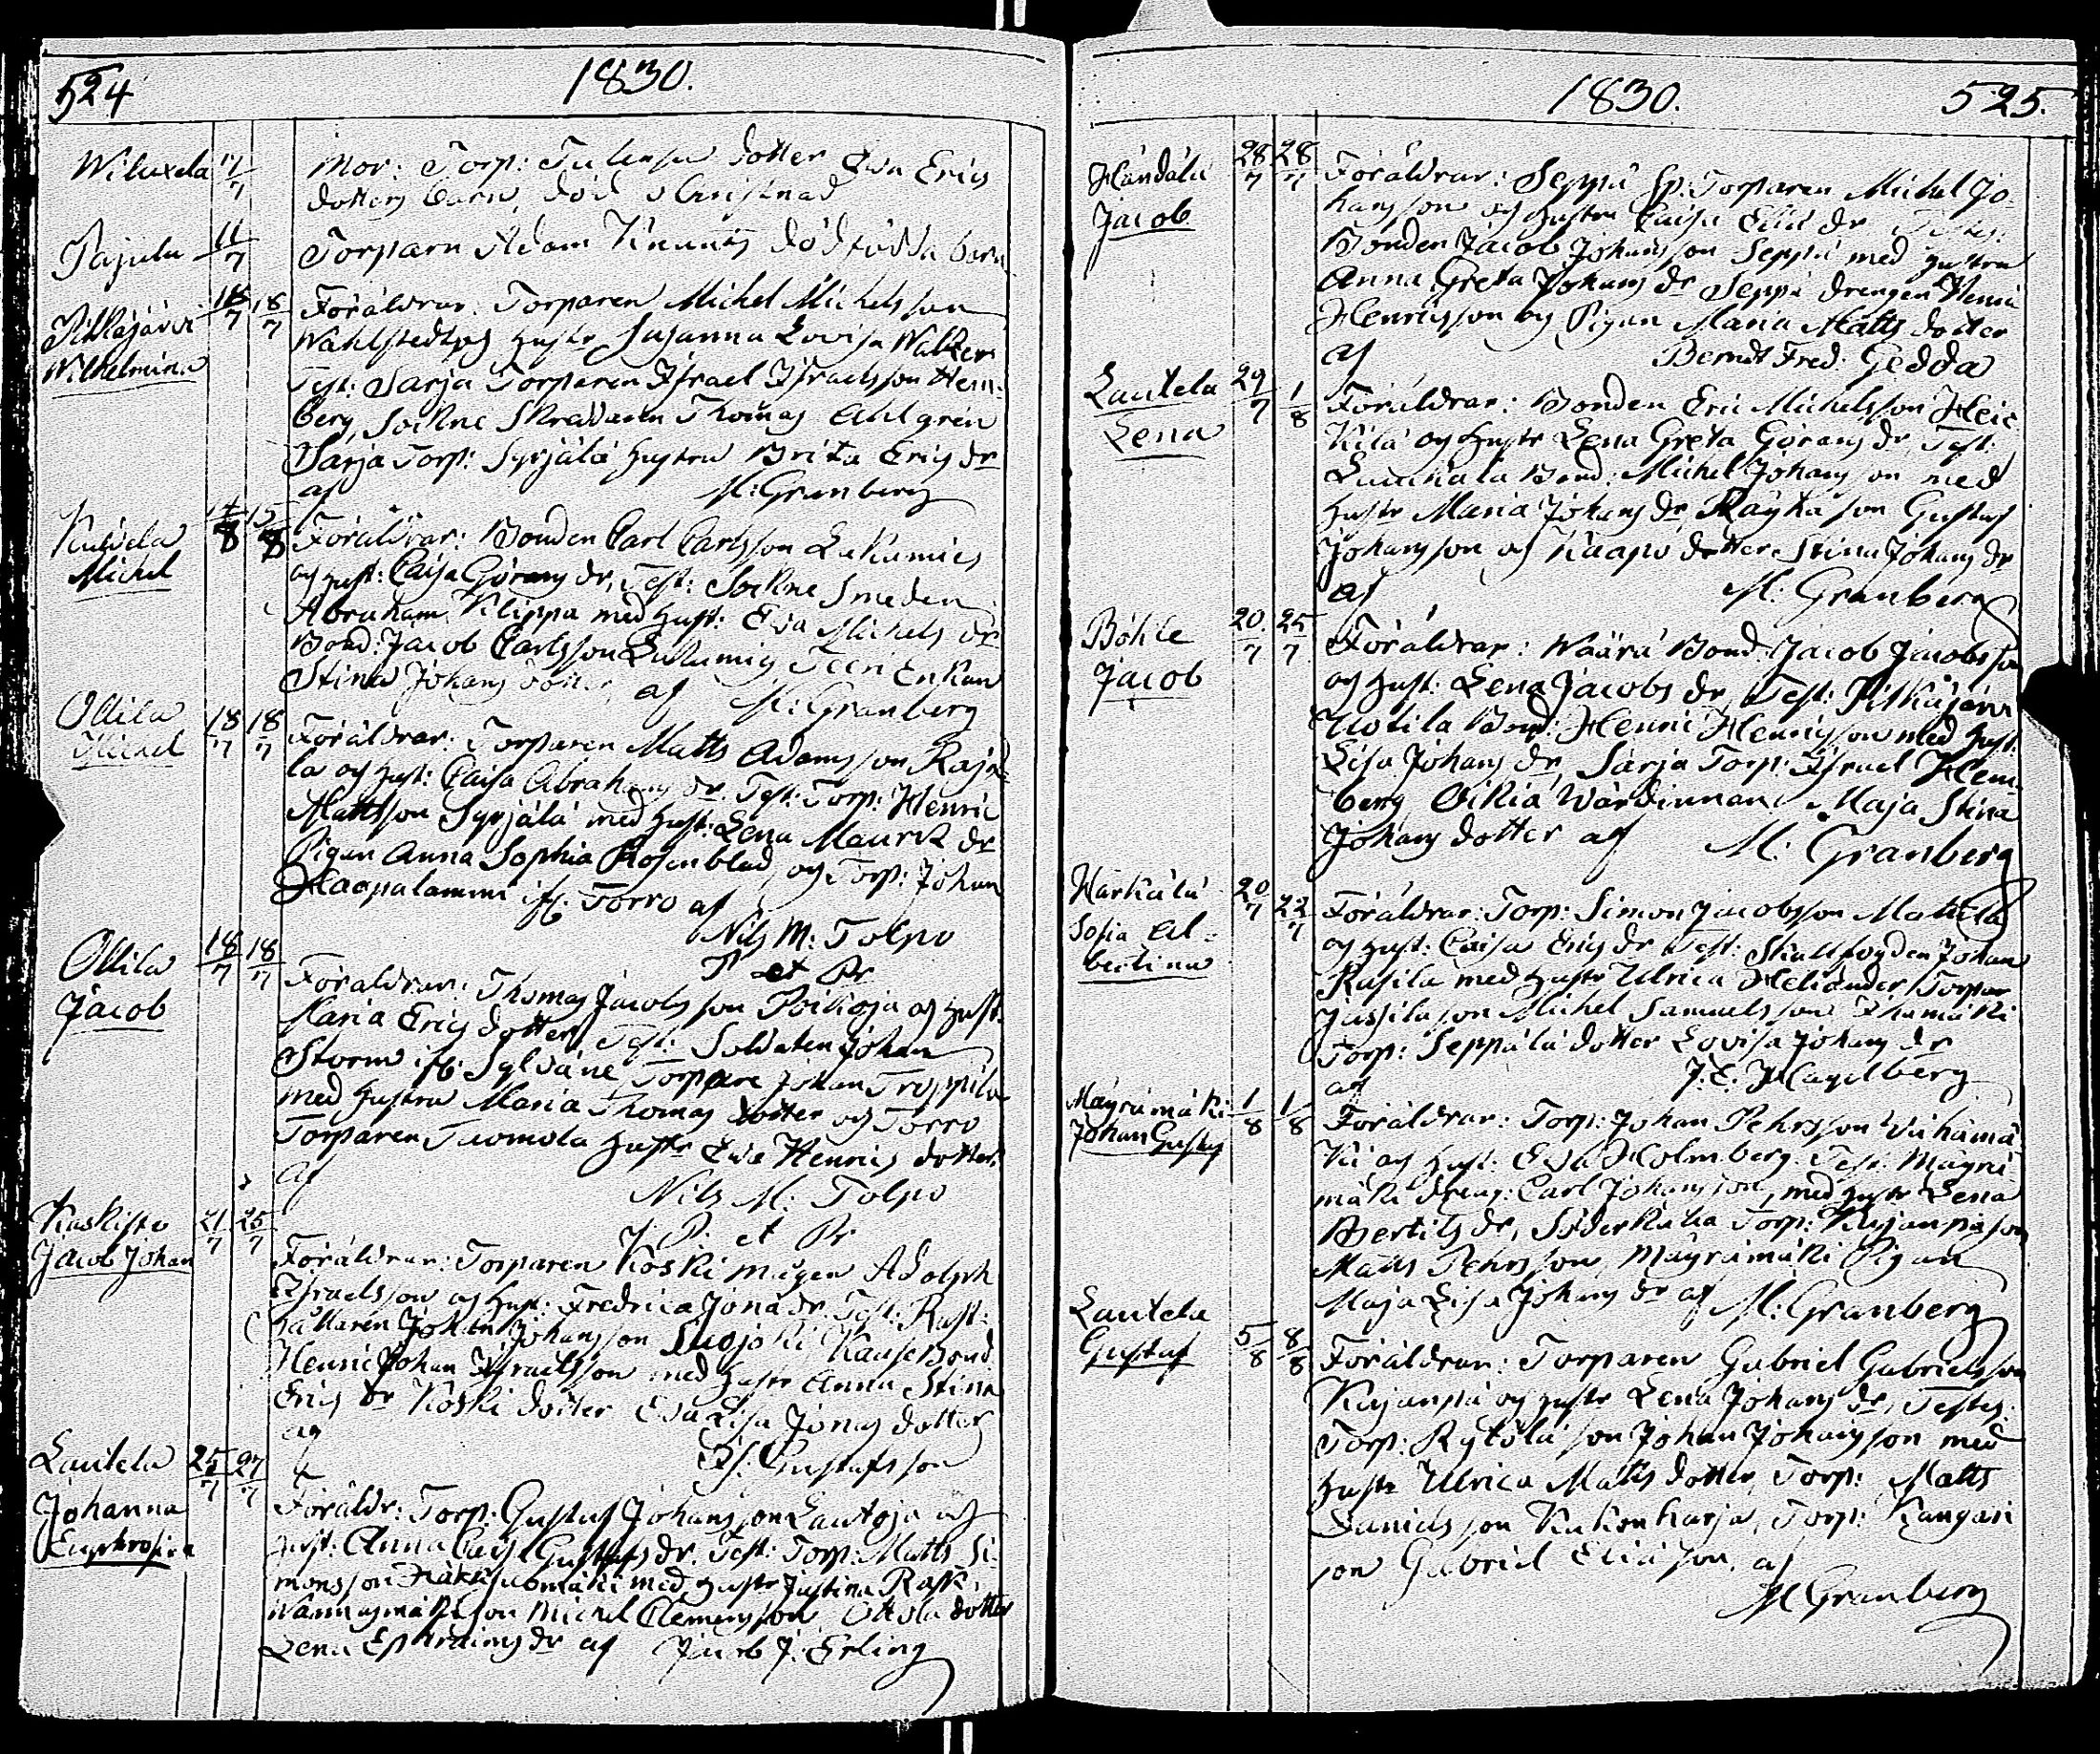 524 1830.
Wiluxela 17/7 Mor: Torp: dotter Ewa Erics
dotters barn, död
Pajula 11/7 Torparn Adam Knuuts dödfödda barn
Pitkäjärvi 18/7 18/7 Föräldrar: Torparen Michel Michelsson
Wilhelmina Wahlstedt og hustr Susanna Lovisa
Test: Sarja Torparen Israel Israelsson Hem-
berg, Sockne Skreddaren Thomas Ahlgren
Sarja Torp: Syrjälä hustru Brita Erics dr
af M: Granberg
15/8 Föräldrar: Bonden Carl Carlsson Lukumies
Michel og hust: Caisa Görans dr, Test: Sockne Smeden
Abraham Klippa med hust: Ewa Michels dr
Bond: Jacob Carlsson Teeri Enkan
Stina Johans dotter, af M: Granberg
Ollila 18/7 18/7 Föräldrar: Torparen Matts Adamsson
Michel la og hust: Caisa Abrahams dr. Test: Torp: Henric
Mattsson Syrjälä med hust: Lena Maurits dr
Pigan Anna Sophia Rosenblad, og Torp: Johan
Haapalammi ifr. Torro af
Nils M: Tolpo
P et Pr
Ollila 18/7 18/7 Föräldrar: Thomas Jacobsson Poikoja og hust
Jacob Maria Erics dotter, Test: Soldaten Johan
Storm ifr. Torpare Johan Troppila
med hustru Maria Thomas dotter og Torro
Torparen Tuomola hustr Ewa Henrics dotter.
af
Nils M: Tolpo
P. et Pr
Koskisto 21/7 25/7 Föräldrar: Torparen Koski Adolph
Jacob Johan Israelsson og hust: Fredrica Jona dr. Test: Rust:
hållaren Johan Johansson Suojoki Bond
Henric Johan Israelsson med hustr Anna Stina
Erics dr Koski dotter Eva Lisa Jonas dotter
af
Gustafsson
Lautela 25/7 27/7 Föräldr: Torp: Gustaf Johansson Lautoja og
Johanna hust: Anna Caisa Gustafs dr. Test: Torp: Matts Si-
Euphrosina monsson med hustr Justina Rask,
son Michel Clemensson, Ottola dotter
Lena Ephraims dr af Jacob J: Erling
1830. 525.
Händälä 28/7 28/7 Föräldrar: Seppä Sp: Torparen Michel Jo-
Jacob hansson og hustru Caisa dr
Bonden Jacob Johansson Seppä med hustru
Anna Greta Johans dr Seppä drengen Henric
Henricsson og Pigan Maria Matts dotter
af Berndt Fred: Gedda
Lautela 29/7 1/8 Föräldrar: Bonden Eric Michelsson Heic
Lena kilä og hustr Lena Greta Görans dr, Test:
Bond: Michel Johansson med
hustr Maria Johans dr, son Gustaf
Johansson og Kaapo dotter Stina Johans dr
af M: Granberg
Böhle 20/7 25/7 Föräldrar: Wäärä Bond Jacob Jacobsson
Jacob og hust: Lena Jacobs dr, Test: Pitkäjärvi
Uotila Bond: Henric Henricsson med hust:
Lisa Johans dr, Sarja Torp: Israel Hem-
berg Oikiä Wärdinnan Maja Stina
Johans dotter af M: Granberg
Härkälä 20/7 22/7 Föräldrar: Torp: Simon Jacobsson
Sofia Al- og hust: Caisa Erics dr Test: Skallfogden Johan
bertina Rusila med hustr Ulrica Heliander Torpar
Jussila son Michel Samuelsson
Torp: Seppälä dotter Lovisa Johans dr
af J. E. Hagelberg
Mäyrämäki 1/8 1/8 Föräldrar: Torp: Johan Pehrsson
Johan Gustaf ki og hust: Eva Holmberg. Test: Mäyrä
mäki dreng: Carl Johansson, med hustr Lena
Bertils dr, Söderkulla Torp: Kujanpä son
Matts Pehrsson, Mäyrämäki Pigan
Maja Lisa Johans dr af M: Granberg
Lautela 5/8 8/8 Föräldrar: Torparen Gabriel Gabrielsson
Gustaf Kujanpä og hustr Lena Johans dr, Testes:
Torp: Rytölä son Johan Johansson med
hustr Ulrica Matts dotter, Torp: Matts
Danielsson Kukonharja, Torp: Kangari
son Gabriel Eliæson, af
M Granberg